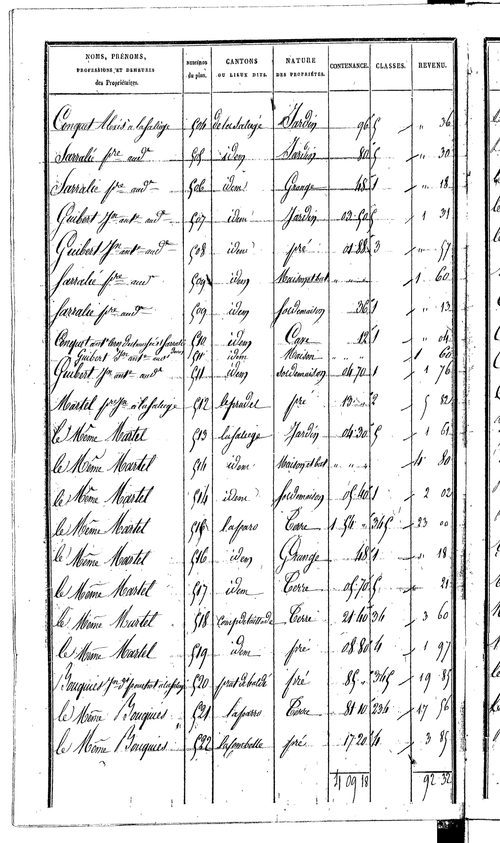 NOMS, PRÉNOMS, PROFESSIONS ET DEMEURES des Propriétaires. NUMÉROS du plan. CANTONS OU LIEUX DITS. NATURE DES PROPRIÉTÉS. CONTENANCE. CLASSES. REVENU.
Conquet Alexis a lafaliége 504 delafaliége Jardin 96 5 " 36
Sarralié pre aud 505 idem Jardin 80 5 " 30
Sarralié pre aud 506 idem Grange 48 1 " 18
Guibert Jn ant aud 507 idem Jardin 03 50 5 1 31
Guibert Jn ant aud 508 idem pré 01 88 3 " 57
Sarralié pre aud 509 idem Maison et bat " " 1 60
Sarralié pre aud 509 idem sol de maison 36 1 " 13
Conquet 510 idem Cave 12 1 " 04
Guibert Jn ant aud 511 idem Maison " " 1 60
Guibert Jn ant aud 511 idem sol de maison 04 70 1 1 76
Martel pre Jn a lafaliége 512 lepradel pré 13 " 2 5 82
le Même Martel 513 lafaliége Jardin 04 30 5 1 61
le Même Martel 514 idem Maison et bat " " 4 80
le Même Martel 514 idem sol de maison 05 40 1 2 02
le Même Martel 515 lasparro Terre 1 54 " 345 23 00
le Même Martel 516 idem Grange 48 1 " 18
le Même Martel 517 idem Terre 05 70 5 " 21
le Même Martel 518 Terre 21 40 34 3 60
le Même Martel 519 idem pré 08 80 4 1 97
Bouques 520 pré 85 " 345 19 85
le Même Bouques 521 lasparro Terre 81 10 234 17 56
le Même Bouques 522 lacombelle pré 17 20 4 3 85
4 09 18 92 32